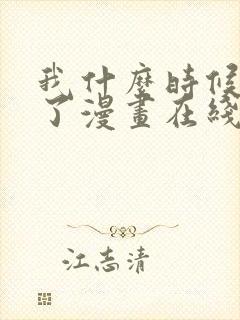 我什麼時候
了漫畫在綫
江志清